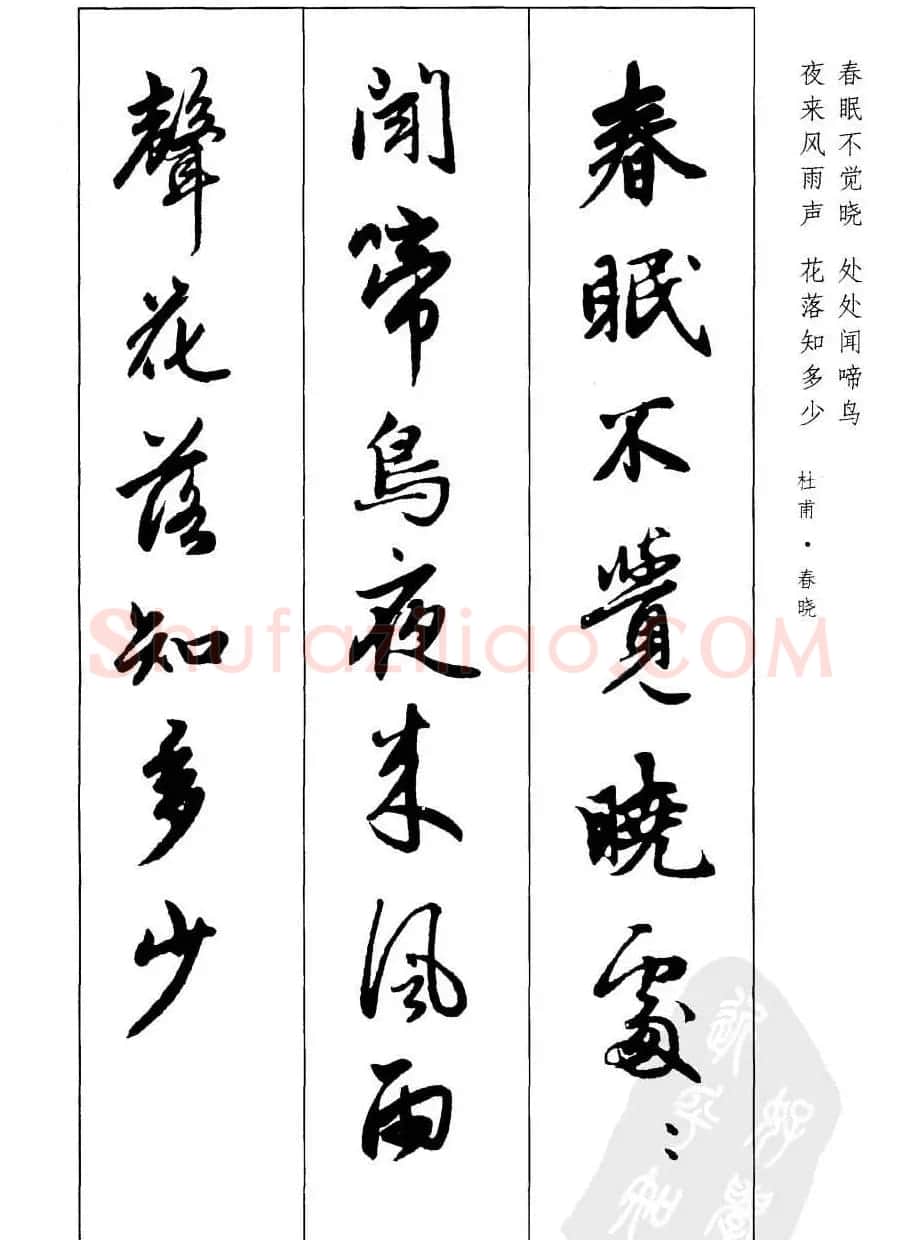 春眠不觉晓 处处闻啼鸟
夜来风雨声 花落知多少
杜甫·春晓
春眠不覺曉處:
聞啼鳥夜来風雨
聲花落知多少
Shufaziliao.COM